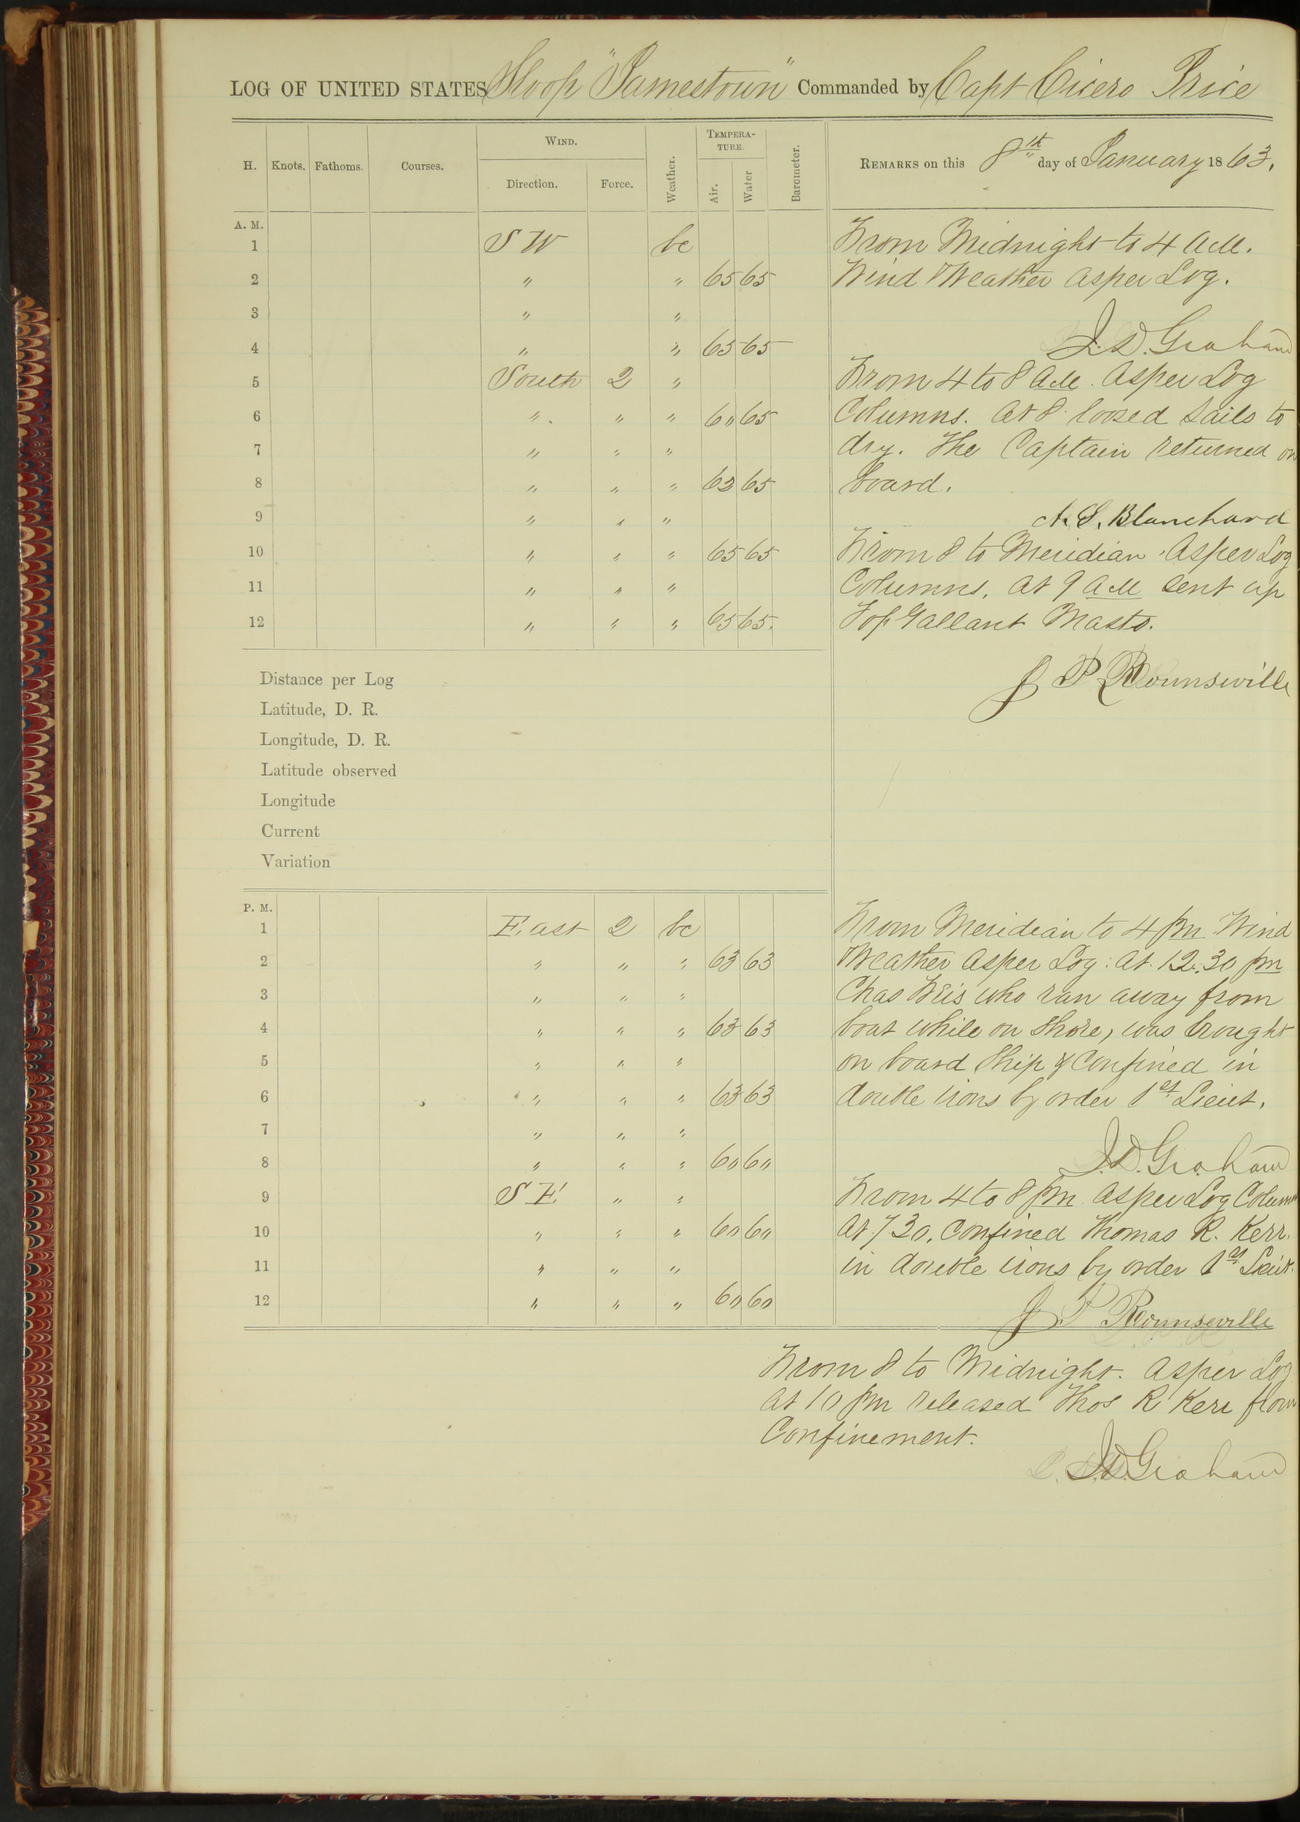 LOG OF UNITED STATES Sloop "Jamestown" Commanded by Capt Cicero Price
H. Knots. Fathoms. Courses. WIND. Direction. Force. Weather. TEMPERATURE. Air. Water Barometer. REMARKS on this 8th day of January 1863.
A. M.
1 SW bc From Midnight to 4 AM.
2 " " 65 65 Wind Weather as per Log.
3 " "
4 " " 65 65 J.D. Graham
5 South 2 " From 4 to 8 AM. As per Log
6 " " " 60 65 Columns. At 8 loosed sails to
7 " " " dry. The Captain returned on
8 " " " 63 65 board.
9 " " " N. S. Blanchard
10 " " " 65 65 From 8 to Meridian. As per Log
11 " " " Columns. At 9 AM sent up
12 " " " 65 65. Top Gallant Masts.
J P Rounseville
Distance per Log
Latitude, D. R.
Longitude, D. R.
Latitude observed
Longitude
Current
Variation
P. M.
1 East 2 bc From Meridian to 4 pm Wind
2 " " " 63 63 Weather as per Log: At 12.30 pm
3 " " " Chas who ran away from
4 " " " 63 63 boat while on shore, was brought
5 " " " on board Ship & Confined in
6 " " " 63 63 double irons by order 1st Lieut.
7 " " "
8 " " " 60 60 J.D. Graham
9 S E " " From 4 to 8 pm as per Log Column
10 " " " 60 60 At 7 30. Confined Thomas R. Kerr.
11 " " " in double irons by order 1st Lieut.
12 " " " 60 60 J P Rounseville
From 8 to Midnight. As per Log
At 10 pm released Thos R Kerr from
Confinement.
J.D. Graham